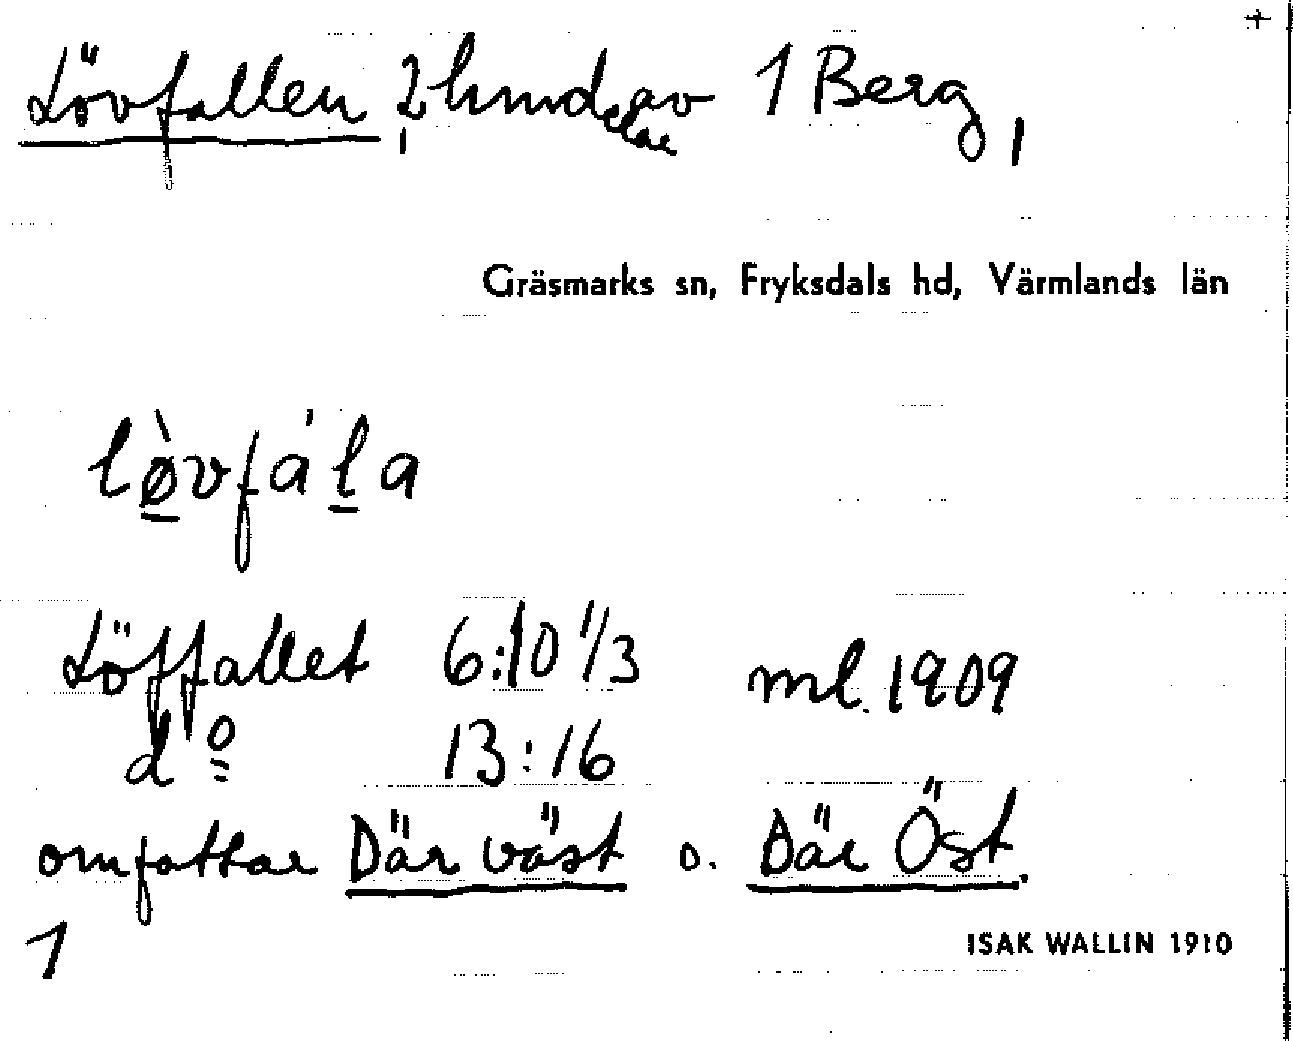 +
Lövfallen, 2 hmdelar av 1 Berg,
Gräsmarks sn, Fryksdals hd, Värmlands län
lø̀vfála
Löffallet 6:10 1/3 ml. 1909
d:o 13:16
omfattar Där väst o. Där Öst.
1
ISAK WALLIN 1910